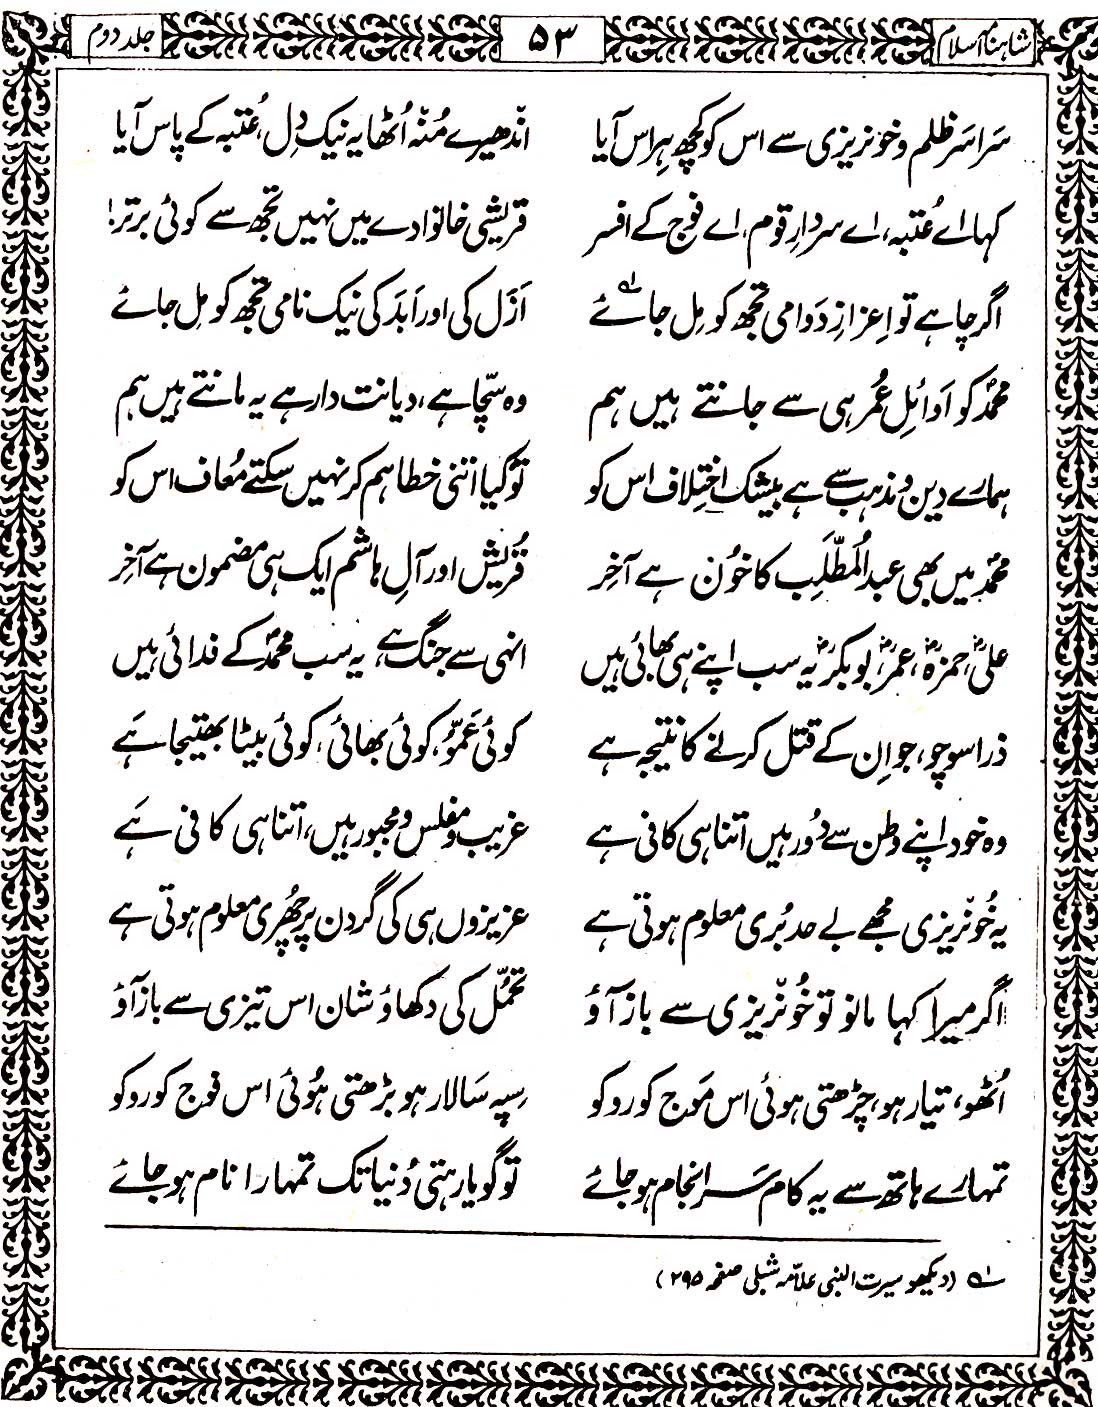 شاہنامہ اسلام ۵۳ جلد دوم
سَراسَر ظلم و خونریزی سے اس کو کچھ ہِراس آیا اندھیرے مُنہ اُٹھا یہ نیک دِل، عُتبہ کے پاس آیا
کہا اے عُتبہ، اے سردارِ قوم، اے فوج کے افسر قریشی خانوادے میں نہیں تجھ سے کوئی برتر!
اگر چاہے تو اِعزازِ دَوامی تجھ کو مِل جائے ؎۱ اَزَل کی اور اَبَد کی نیک نامی تجھ کو مِل جائے
محمدؐ کو اَوائلِ عُمر ہی سے جانتے ہیں ہم وہ سچّا ہے، دیانت دار ہے یہ مانتے ہیں ہم
ہمارے دین و مذہب سے ہے بیشک اِختِلاف اس کو تو کیا اتنی خطا ہم کر نہیں سکتے مُعاف اس کو
محمدؐ میں بھی عبدالمُطَّلِب کا خُون ہے آخِر قُریش اور آلِ ہاشم ایک ہی مضمون ہے آخِر
علیؓ، حمزہؓ، عمرؓ، بوبکرؓ یہ سب اپنے ہی بھائی ہیں انہی سے جنگ ہے یہ سب محمدؐ کے فدائی ہیں
ذرا سوچو، جو اِن کے قتل کرنے کا نتیجہ ہے کوئی عَمّو، کوئی بھائی، کوئی بیٹا بھتیجا ہے
وہ خود اپنے وطن سے دُور ہیں اتنا ہی کافی ہے غریب و مفلس و مجبور ہیں، اتنا ہی کافی ہے
یہ خُونریزی مجھے بے حد بُری معلوم ہوتی ہے عزیزوں ہی کی گردن پر چھُری معلوم ہوتی ہے
اگر میرا کہا مانو تو خُونریزی سے باز آؤ تحمّل کی دکھاؤ شان اس تیزی سے باز آؤ
اُٹھو، تیار ہو، چڑھتی ہوئی اس مَوج کو روکو سِپہ سَالار ہو بڑھتی ہُوئی اس فوج کو روکو
تمہارے ہاتھ سے یہ کام سَرانجام ہو جائے تو گویا رہتی دُنیا تک تمہارا نام ہو جائے
؎۱ (دیکھو سیرت النبی علامہ شبلی صفحہ ۲۹۵)